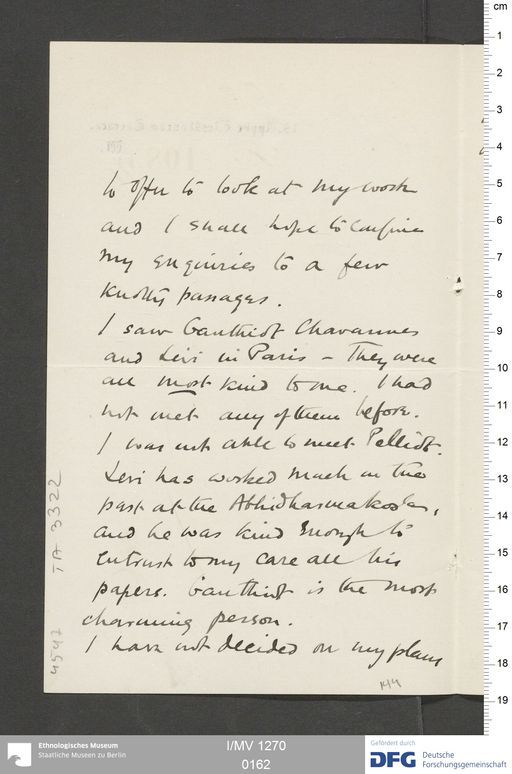 to offer to look at my work
and I shall hope to confine
my enquiries to a few
knotty passages.
I saw Gauthiot Chavannes
and Levi in Paris – They were
all most kind to me. I had
not met any of them before.
I was not able to meet Pelliot.
Levi has worked much in the
past at the Abhidharmakosa,
and he was kind enough to
entrust to my care all his
papers. Gauthiot is the most
charming person.
I have not decided on my plans
144
TA 3322
4547
cm
1
2
3
4
5
6
7
8
9
10
11
12
13
14
15
16
17
18
19
Ethnologisches Museum
Staatliche Museen zu Berlin
I/MV 1270
0162
Gefördert durch
DFG Deutsche
Forschungsgemeinschaft